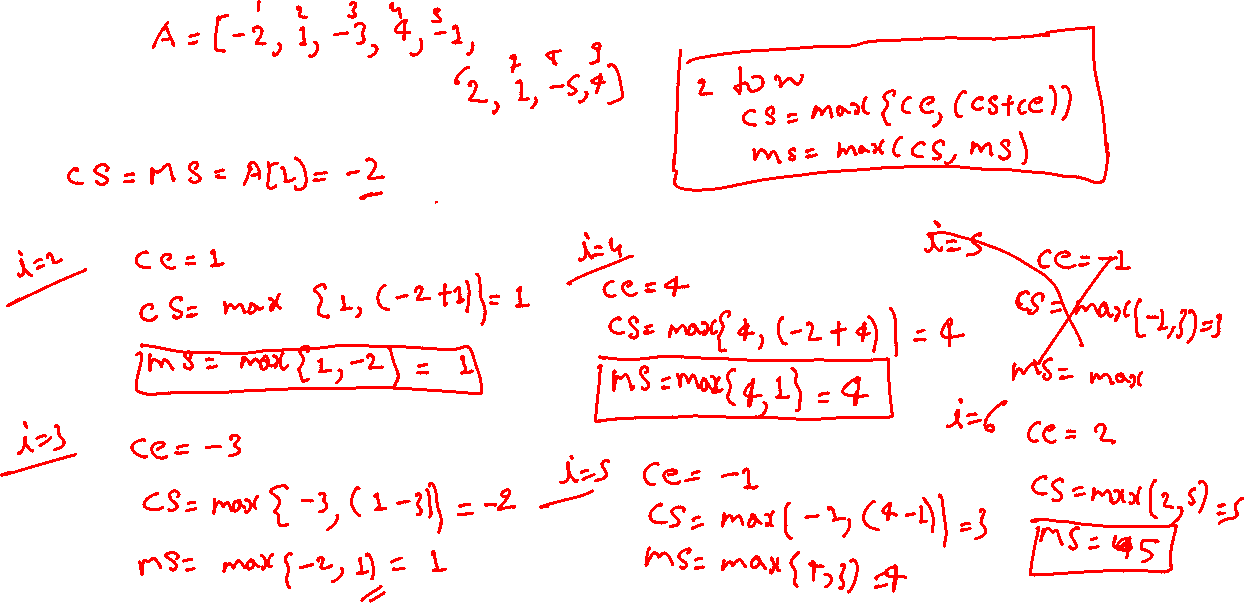 1 2 3 4 5
A = [-2, 1, -3, 4, -1,
6 7 8 9
2, 1, -5, 4]
2 to n
cs = max {ce, (cs+ce))
ms = max(cs, ms)
cs = MS = A[1] = -2
i=2
ce = 1
cs = max {1, (-2+1)} = 1
ms = max {1, -2} = 1
i=3
ce = -3
cs = max {-3, (1-3)} = -2
ms = max {-2, 1} = 1
i=4
ce = 4
cs = max{4, (-2+4)} = 4
ms = max{4, 1} = 4
i=5
ce = -1
cs = max(-1, 3) = 3
ms = max
i=5
ce = -1
cs = max(-1, (4-1)) = 3
ms = max{4, 3) = 4
i=6
ce = 2
cs = max(2, 5) = 5
ms = 5